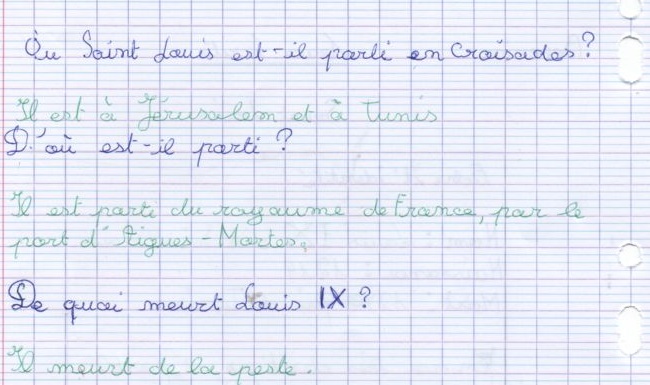 Où Saint Louis est-il parti en croisades ?
Il est à Jérusalem et à Tunis
D'où est-il parti ?
Il est parti du royaume de France, par le
port d'Aigues-Mortes.
De quoi meurt Louis IX ?
Il meurt de la peste.